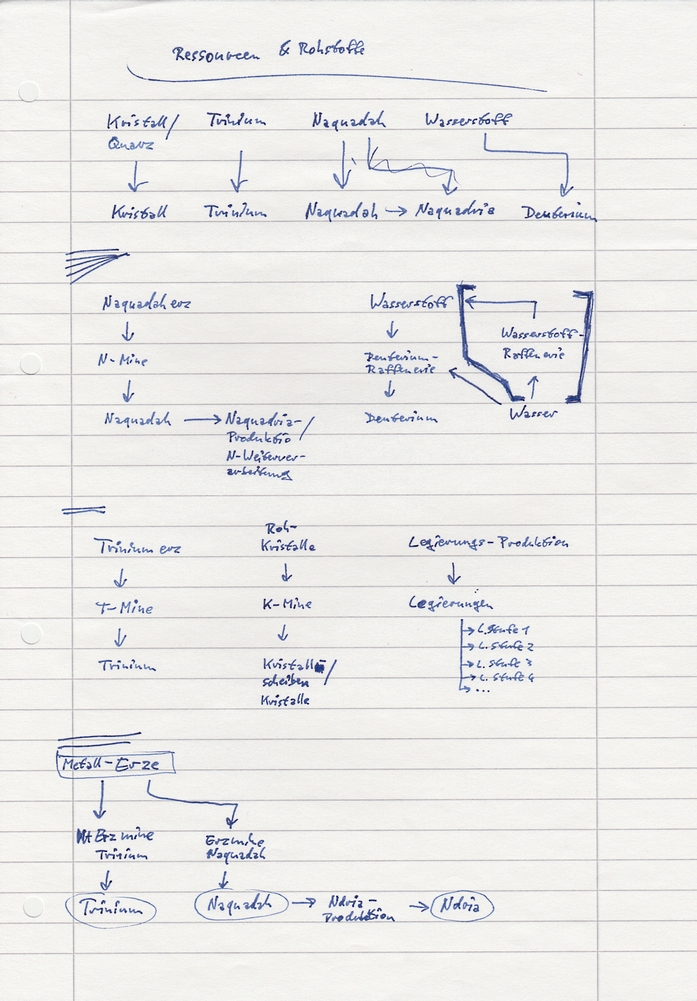 Ressourcen & Rohstoffe
Kristall/ Trinium Naquadah Wasserstoff
Quarz
Kristall Trinium Naquadah → Naquadria Deuterium
Naquadah erz Wasserstoff
Wasserstoff-
Raffenerie
N-Mine Deuterium-
Raffenerie
Wasser
Naquadah → Naquadria-
Produktio/
N-Weiterver-
arbeitung
Deuterium
Roh-
Trinium erz Kristalle Legierungs-Produktion
T-Mine K-Mine Legierungen
L.Stufe 1
L.Stufe 2
L.Stufe 3
L.Stufe 4
...
Trinium Kristall
scheiben/
Kristalle
Metall-Erze
Erzmine Erzmine
Trinium Naquadah
Trinium Naquadah → Ndria-
Produktion → Ndria